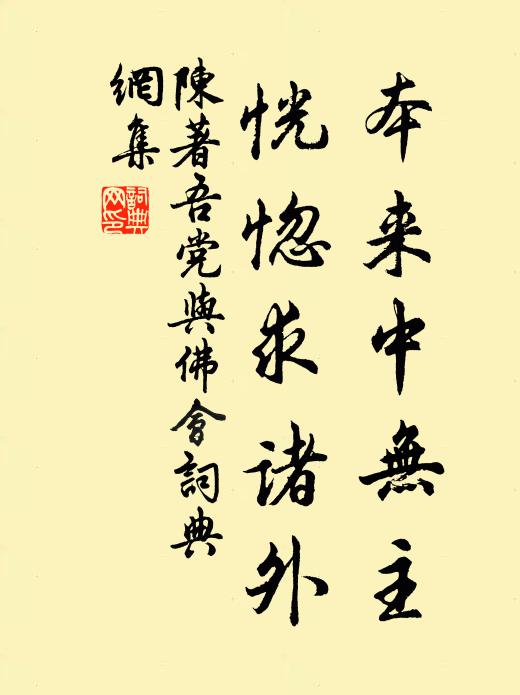 本来中無主
恍惚求諸外
陳著吾党與佛會詞典
網集
詞典
網印